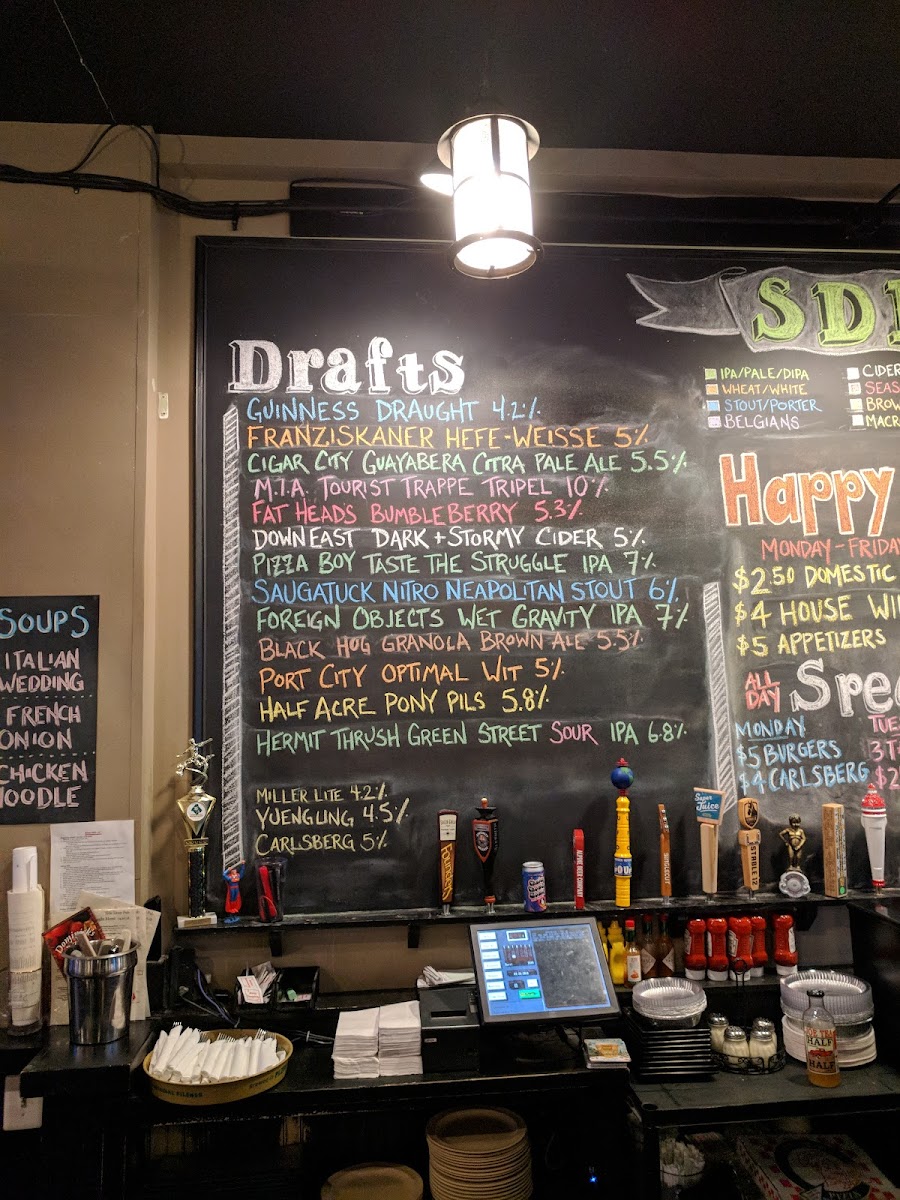 SOUPS
ITALIAN
WEDDING
FRENCH
ONION
CHICKEN
NOODLE
Drafts
GUINNESS DRAUGHT 4.2%
FRANZISKANER HEFE-WEISSE 5%
CIGAR CITY GUAYABERA CITRA PALE ALE 5.5%
M.I.A. TOURIST TRAPPE TRIPEL 10%
FAT HEADS BUMBLEBERRY 5.3%
DOWNEAST DARK + STORMY CIDER 5%
PIZZA BOY TASTE THE STRUGGLE IPA 7%
SAUGATUCK NITRO NEAPOLITAN STOUT 6%
FOREIGN OBJECTS WET GRAVITY IPA 7%
BLACK HOG GRANOLA BROWN ALE 5.5%
PORT CITY OPTIMAL WIT 5%
HALF ACRE PONY PILS 5.8%
HERMIT THRUSH GREEN STREET SOUR IPA 6.8%
MILLER LITE 4.2%
YUENGLING 4.5%
CARLSBERG 5%
SD
IPA/PALE/DIPA
WHEAT/WHITE
STOUT/PORTER
BELGIANS
CIDER
SEAS
BROW
MACR
Happy
MONDAY-FRIDAY
$2.50 DOMESTIC
$4 HOUSE WI
$5 APPETIZERS
ALL DAY Spe
MONDAY
$5 BURGERS
$4 CARLSBERG
TUES
3 T
$2
Super Juice
STABLE 12
HALF
HALF